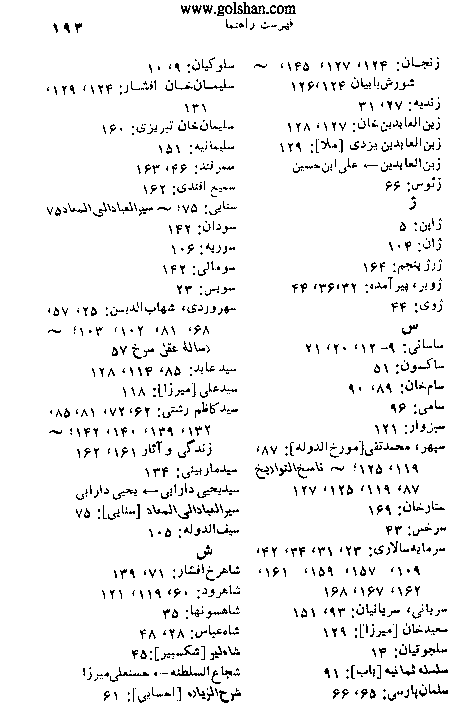 www.golshan.com
فهرست راهنما
۱۹۳
زنجان: ۱۲۴، ۱۲۷، ۱۴۵، ~
شورش بابیان ۱۲۴، ۱۲۶
زندیه: ۲۷، ۳۱
زین‌العابدین‌خان: ۱۲۷، ۱۲۸
زین‌العابدین یزدی [ملا]: ۱۲۹
زین‌العابدین ← علی ابن حسین
زئوس: ۶۶
ژ
ژاپن: ۵
ژان: ۱۰۴
ژرژ پنجم: ۱۶۴
ژوبر، پیر آمده: ۳۲، ۳۶، ۴۴
ژوی: ۴۴
س
ساسانی: ۹–۱۲، ۲۰، ۲۱
ساکسون: ۵۱
سام‌خان: ۸۹، ۹۰
سامی: ۹۶
سبزوار: ۱۲۱
سپهر، محمدتقی [مورخ‌الدوله]: ۸۷،
۱۱۹، ۱۲۵؛ ~ ناسخ‌التواریخ
۸۷، ۱۱۹، ۱۲۵، ۱۲۷
ستارخان: ۱۶۹
سرخس: ۴۳
سرمایه‌سالاری: ۲۳، ۳۱، ۳۴، ۴۲،
۱۰۹، ۱۵۷، ۱۵۹، ۱۶۱،
۱۶۲، ۱۶۷، ۱۶۸
سریانی، سریانیان: ۹۳، ۱۵۱
سعیدخان [میرزا]: ۱۲۹
سلجوقیان: ۱۴
سلسله ثمانیه [باب]: ۹۱
سلمان پارسی: ۶۵، ۶۶
سلوکیان: ۹، ۱۰
سلیمان‌خان افشار: ۱۲۴، ۱۲۹،
۱۳۱
سلیمان‌خان تبریزی: ۱۶۰
سلیمانیه: ۱۵۱
سمرقند: ۴۶، ۱۶۳
سمیع افندی: ۱۶۲
سنایی: ۷۵؛ ~ سیرالعبادالی‌المعاد ۷۵
سودان: ۱۴۲
سوریه: ۱۰۶
سومالی: ۱۴۲
سویس: ۲۳
سهروردی، شهاب‌الدین: ۲۵، ۵۷،
۶۸، ۸۱، ۱۰۲، ۱۰۳؛ ~
رسالۀ عقل سرخ ۵۷
سید عابد: ۸۵، ۱۱۴، ۱۲۸
سیدعلی [میرزا]: ۱۱۸
سیدکاظم رشتی: ۶۲، ۷۲، ۸۱، ۸۵،
۱۳۲، ۱۳۹، ۱۴۰، ۱۴۲؛ ~
زندگی و آثار ۱۶۱، ۱۶۲
سیدمار بینی: ۱۳۴
سیدیحیی دارابی ← یحیی دارابی
سیرالعبادالی‌المعاد [سنایی]: ۷۵
سیف‌الدوله: ۱۰۵
ش
شاهرخ افشار: ۷۱، ۱۳۹
شاهرود: ۶۰، ۱۱۹، ۱۲۱
شاهسونها: ۳۵
شاه‌عباس: ۲۸، ۴۸
شاه‌لیر [شکسپیر]: ۴۵
شجاع‌السلطنه ← حسنعلی میرزا
شرح‌الزیاره [احسایی]: ۶۱